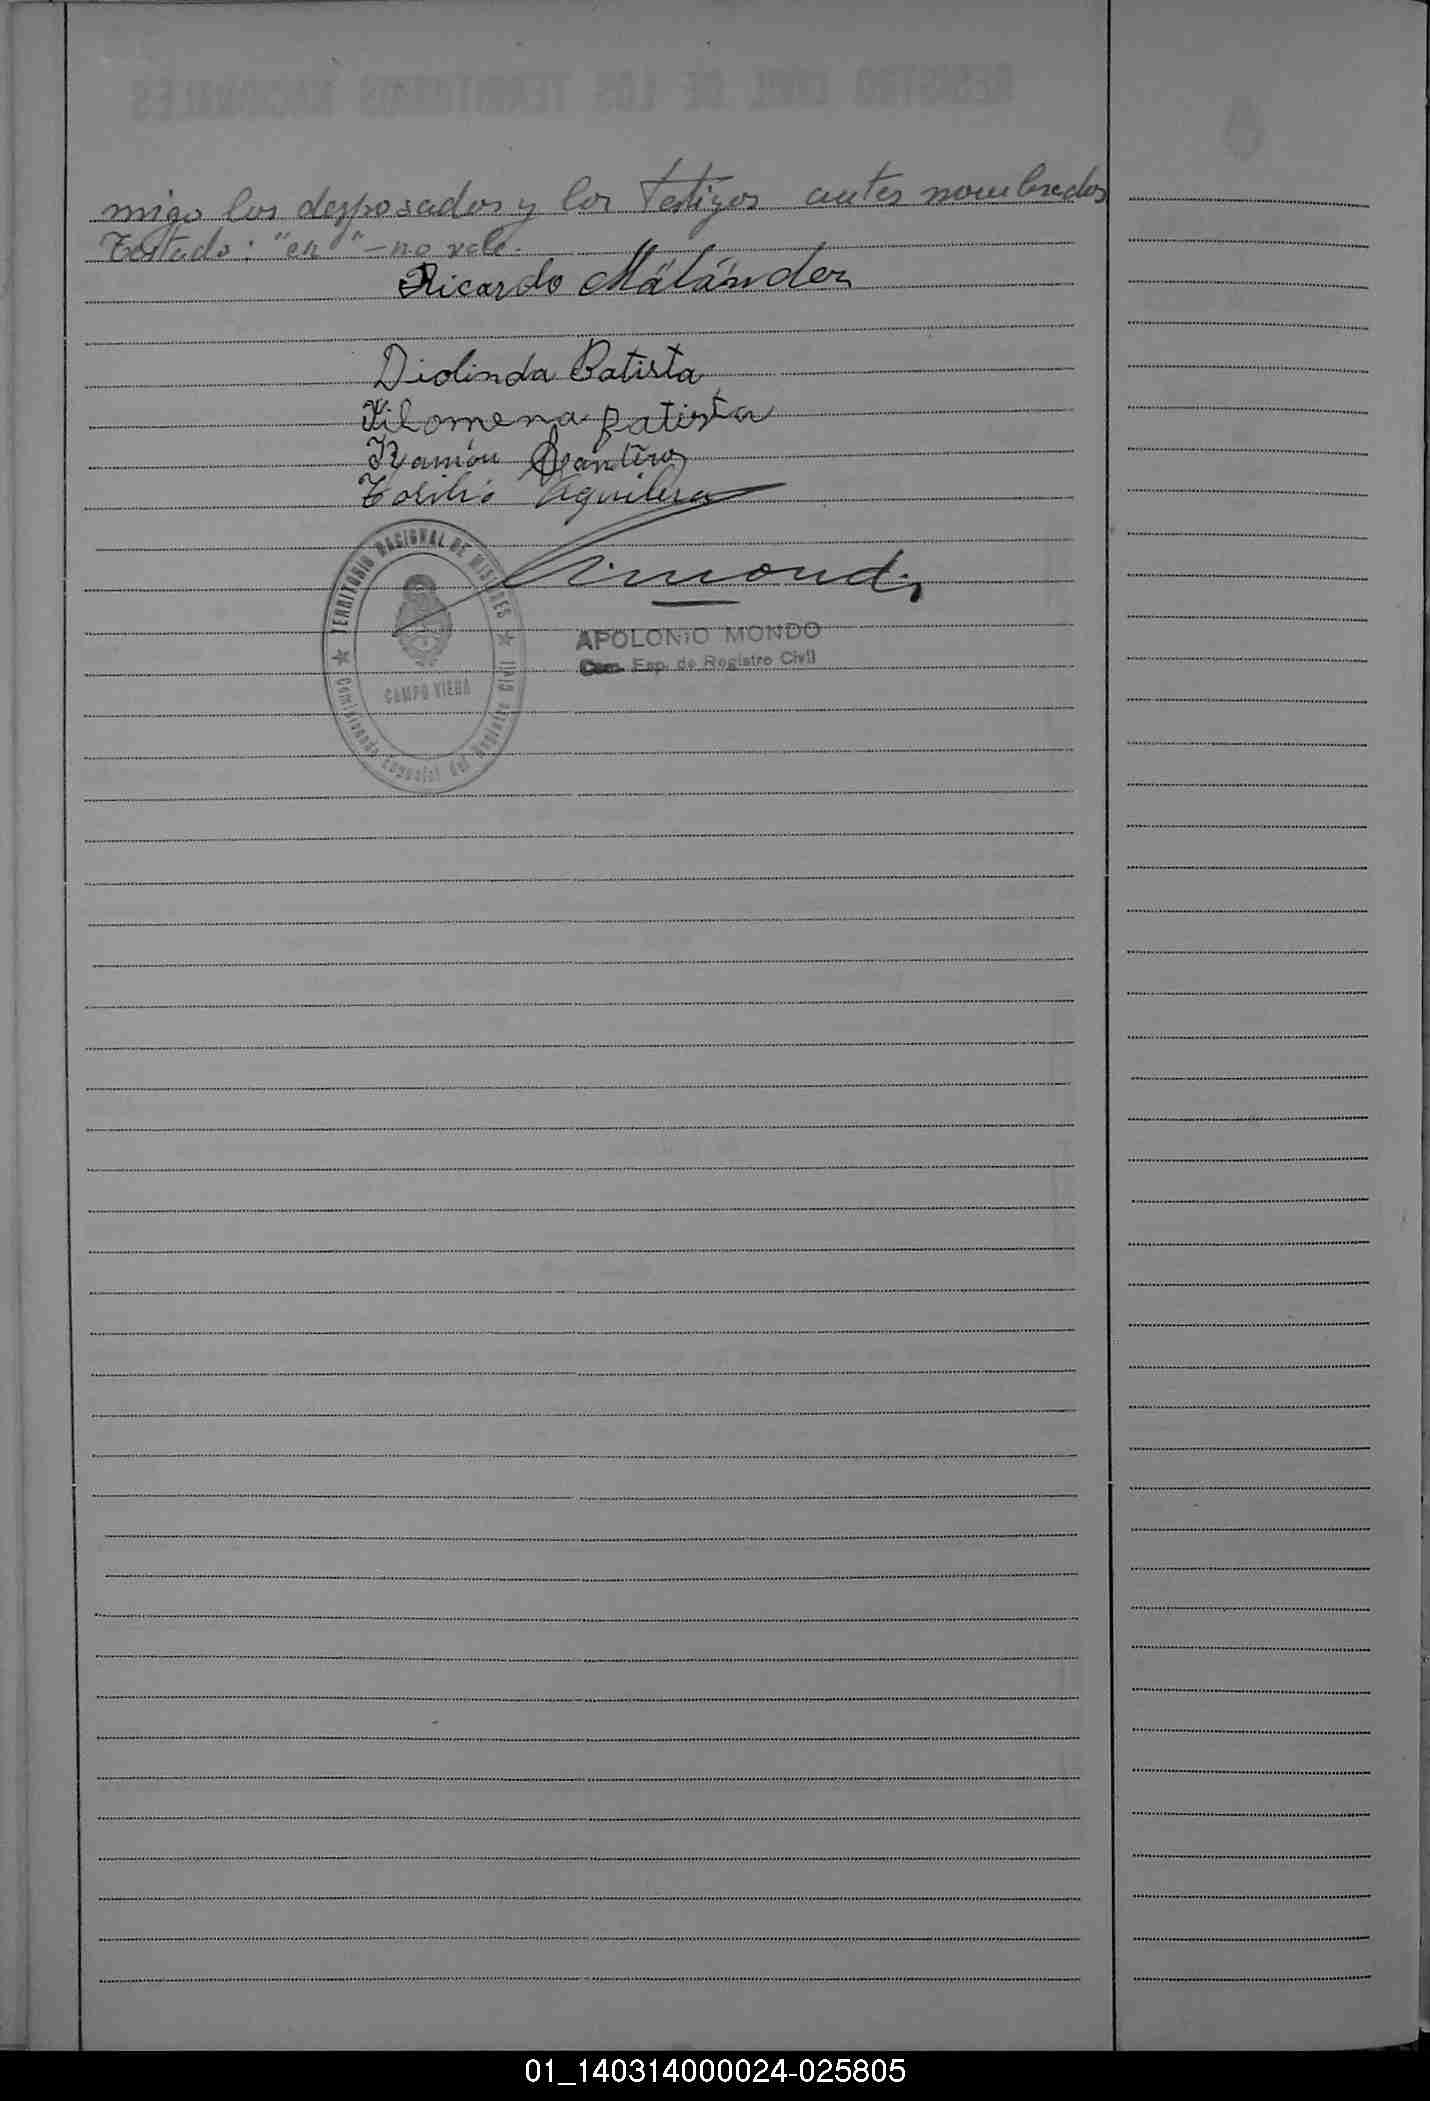 REGISTRO CIVIL DE LOS TERRITORIOS NACIONALES
migo los desposados y los testigos antes nombrados
Testado: "en" - no vale.
Ricardo Málánder
Diolinda Batista
Filomena Batista
Ramón
Aguilera
TERRITORIO NACIONAL DE MISIONES
CAMPO VIERA
Comisionado Especial del Registro Civil
APOLONIO MONDO
Com. Esp. de Registro Civil
01_140314000024-025805